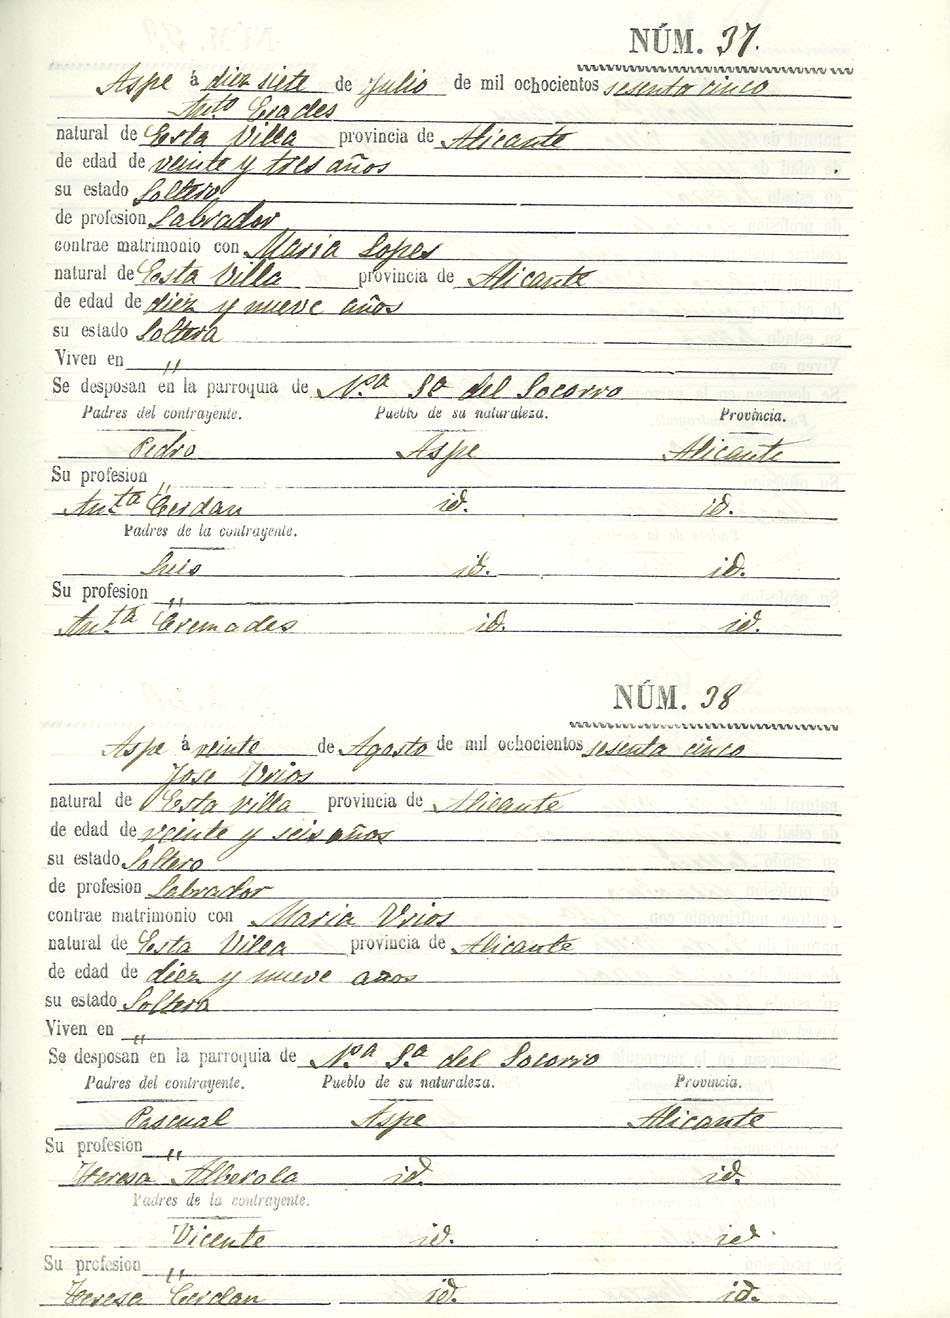 NÚM. 37.
Aspe á diez siete de Julio de mil ochocientos sesenta cinco
Ant.º Erades
natural de Esta Villa provincia de Alicante
de edad de veinte y tres años
su estado Soltero
de profesion Labrador
contrae matrimonio con Maria Lopes
natural de Esta Villa provincia de Alicante
de edad de diez y nueve años
su estado Soltera
Viven en "
Se desposan en la parroquia de N.ª S.ª del Socorro
Padres del contrayente. Pueblo de su naturaleza. Provincia.
Pedro Aspe Alicante
Su profesion "
Ant.ª Cerdan id. id.
Padres de la contrayente.
Luis id. id.
Su profesion "
Ant.ª Cremades id. id.
NÚM. 38
Aspe á veinte de Agosto de mil ochocientos sesenta cinco
Jose Urios
natural de Esta villa provincia de Alicante
de edad de veinte y seis años
su estado Soltero
de profesion Labrador
contrae matrimonio con Maria Urios
natural de Esta Villa provincia de Alicante
de edad de diez y nueve años
su estado Soltera
Viven en "
Se desposan en la parroquia de N.ª S.ª del Socorro
Padres del contrayente. Pueblo de su naturaleza. Provincia.
Pascual Aspe Alicante
Su profesion "
Teresa Alberola id. id.
Padres de la contrayente.
Vicente id. id
Su profesion "
Teresa Cerdan id. id.